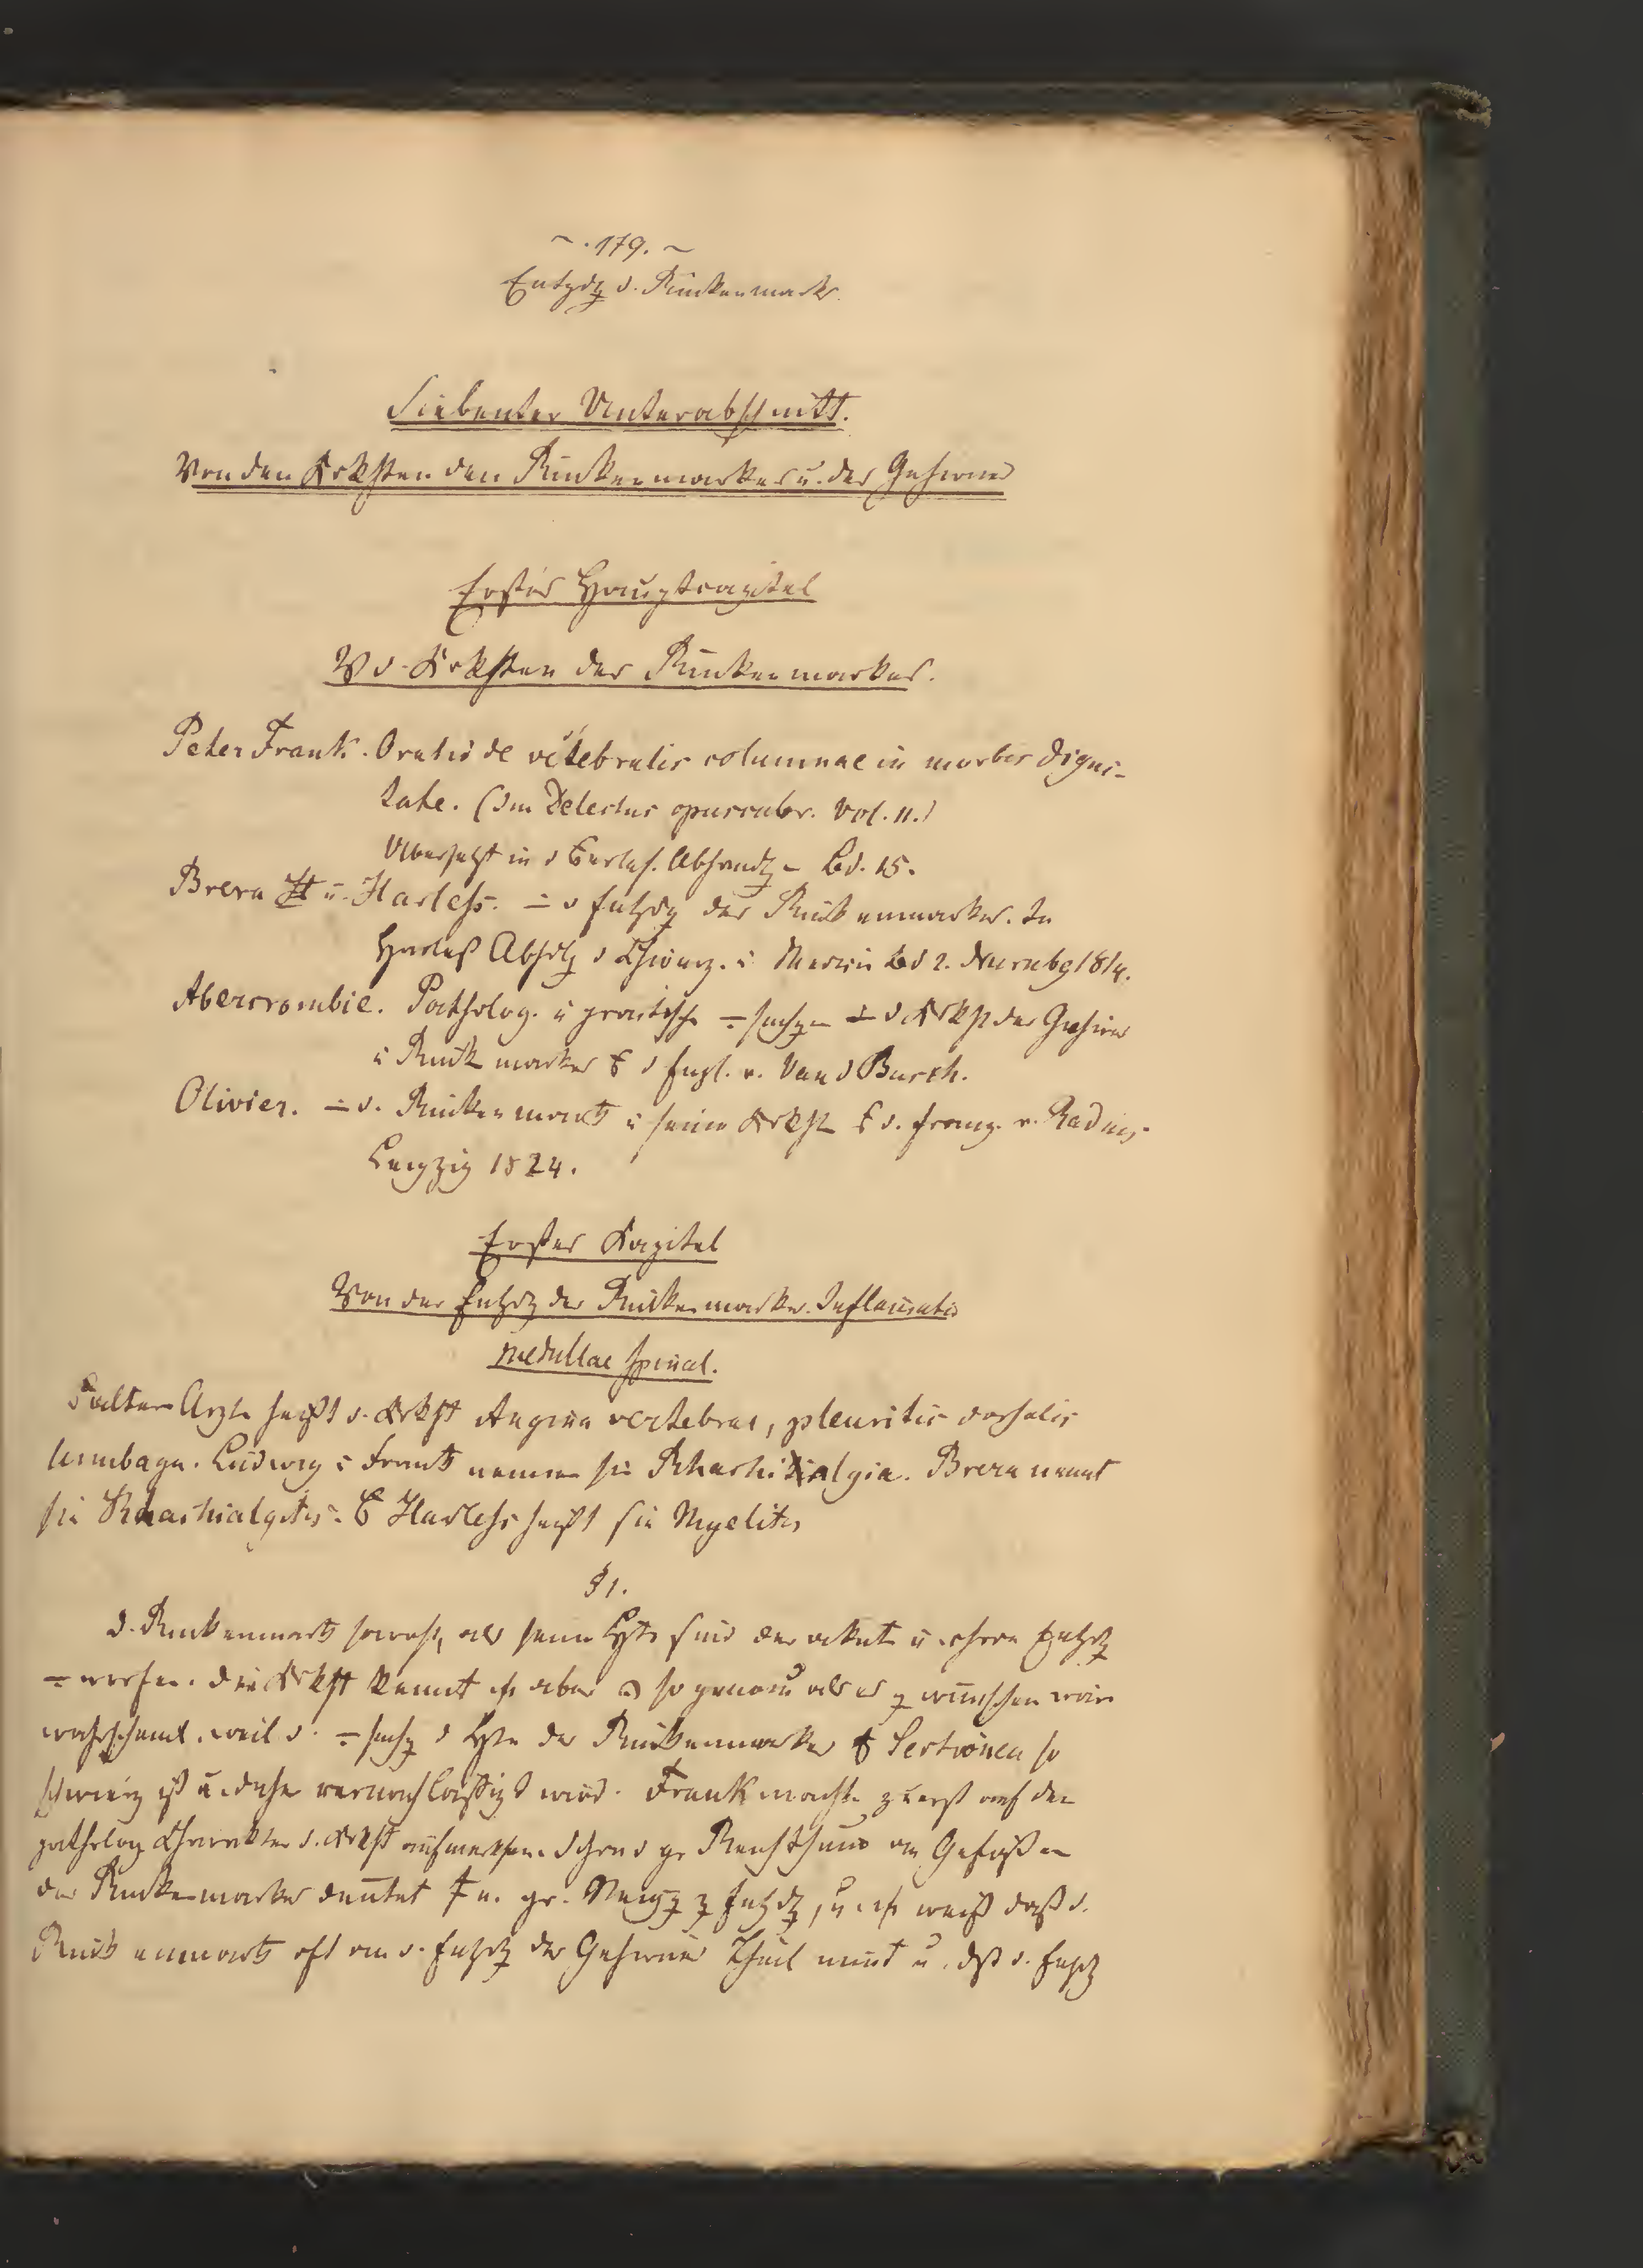 ~ . 179. ~
Entzdg d. Rückenmarks
Siebenter Unterabschnitt.
Von den Krkhten den Rückenmarkes u. des Gehirns
Erstes Hauptcapitel
V d. Krkhten des Rückenmarkes.
Peter Frank. Oratio de vertebralis columnae in morbis digni-
tate. (Im Delectus opusculor. Vol. 11.)
Übersetzt in d Abhandlg Bd. 15.
Brera u. Harless. ∸ d Entzdg des Rückenmarkes. In
Harleß Abhdlg d Chirurg. u Medicin Bd 2. Nurnbg 1814.
Abercrombie. Patholog. u practische ∸ d Krkht des Gehirns
u Rück markes d Engl. v. Van d Busch.
Olivier. ∸ d. Rückenmark u seine Krkht d. Franz. v. Radius
Leipzig 1824.
Erstes Kapitel
Von der Entzdg des Rückenmarks. Inflammatio
medullae spinal.
alten Arzte heißt d. Krkht Angina vertebral, pleuritis dorsalis
lumbago. Ludwig u Frank nennen sie Rhachialgia. Brera nennt
sie Rhachialgitis. Harless heißt sie Myelitis
§ 1.
D. Rückenmark sowohl, als seine Hte sind der akute u. chron Entzdg
÷ worfen. Die Krkht kennt aber so genau als es z wünschen wäre
wahrscheinl. weil d. ÷ suchg d Hte des Rückenmarkes Sectionen so
schwierig ist u. daher vernachlässigt wird. Frank machte zuerst auf den
patholog Charakter d. Krkht aufmerksam. Schon d gr Reichthum an Gefäßen
des Rückenmarkes deutet e. gr. Neigg z Entzdg, u weiß daß d.
Rückenmark oft an d. Entzdg des Gehirns Theil nimt u. dß d. Entzdg